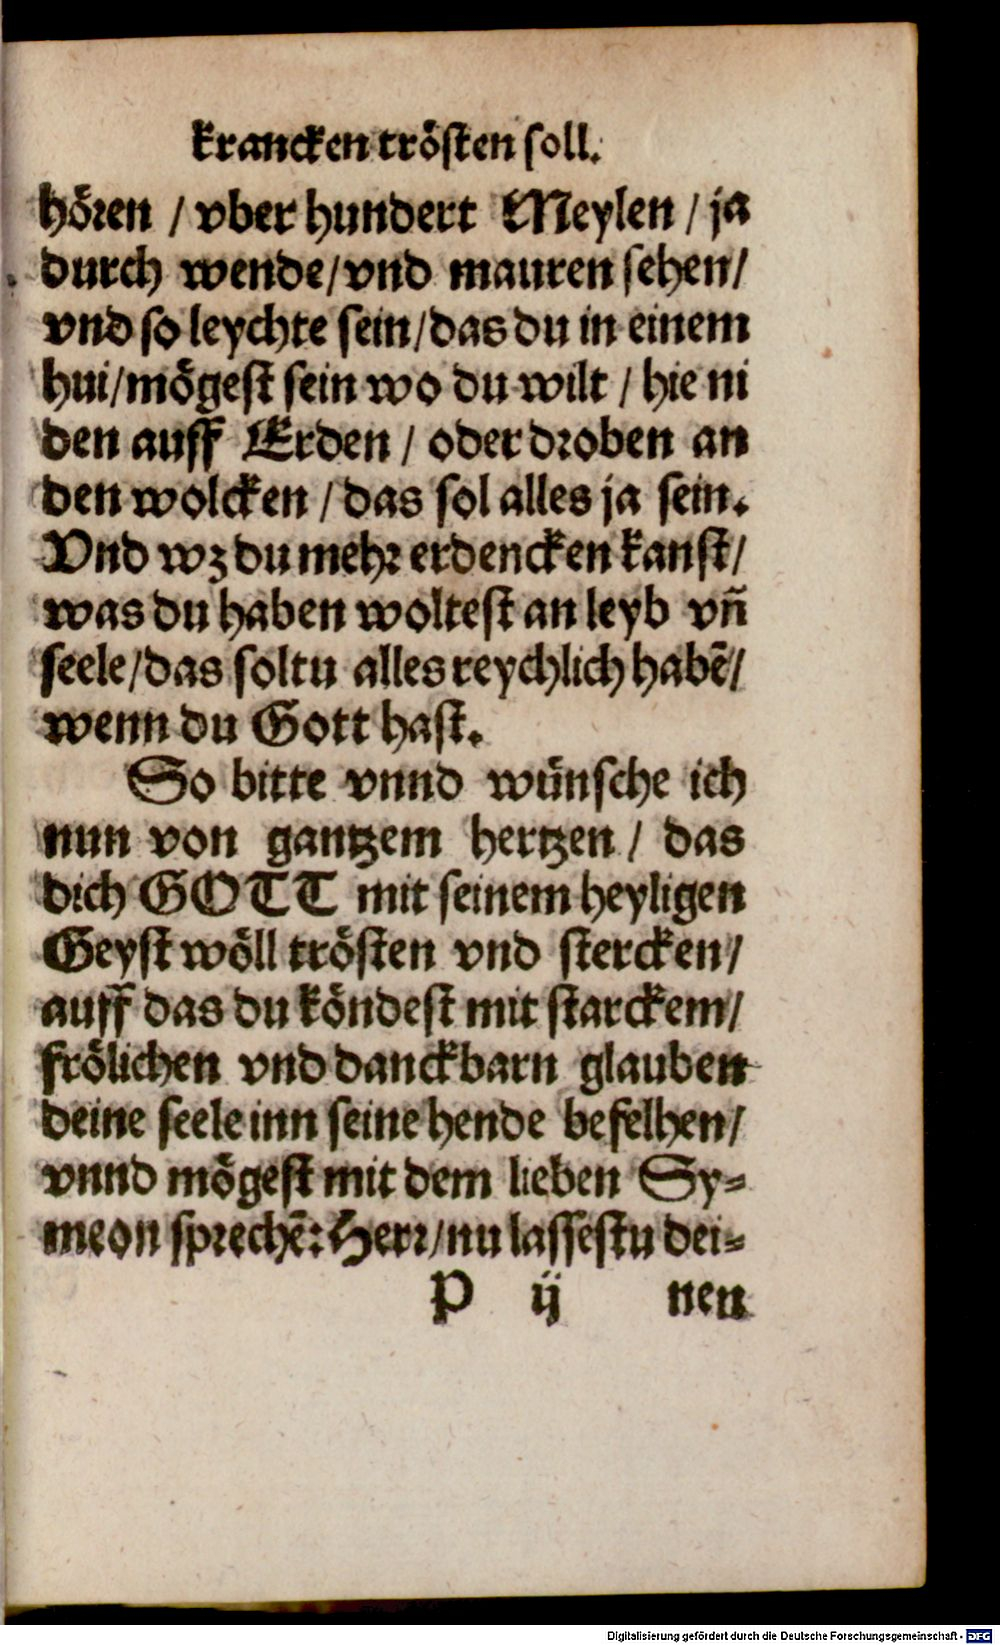 krancken trösten soll.
hören / vber hundert Meylen / ja
durch wende / vnd mauren sehen /
vnd so leychte sein / das du in einem
hui / mögest sein wo du wilt / hie ni
den auff Erden / oder droben an
den wolcken / das sol alles ja sein.
Vnd wz du mehr erdencken kanst /
was du haben woltest an leyb vñ
seele / das soltu alles reychlich habẽ /
wenn du Gott hast.
So bitte vnnd wünsche ich
nun von gantzem hertzen / das
dich GOTT mit seinem heyligen
Geyst wöll trösten vnd stercken /
auff das du köndest mit starckem /
frölichen vnd danckbarn glauben
deine seele inn seine hende befelhen /
vnnd mögest mit dem lieben Sy=
meon sprechẽ: Herr / nu lassestu dei=
P ij nen
Digitalisierung gefördert durch die Deutsche Forschungsgemeinschaft - DFG